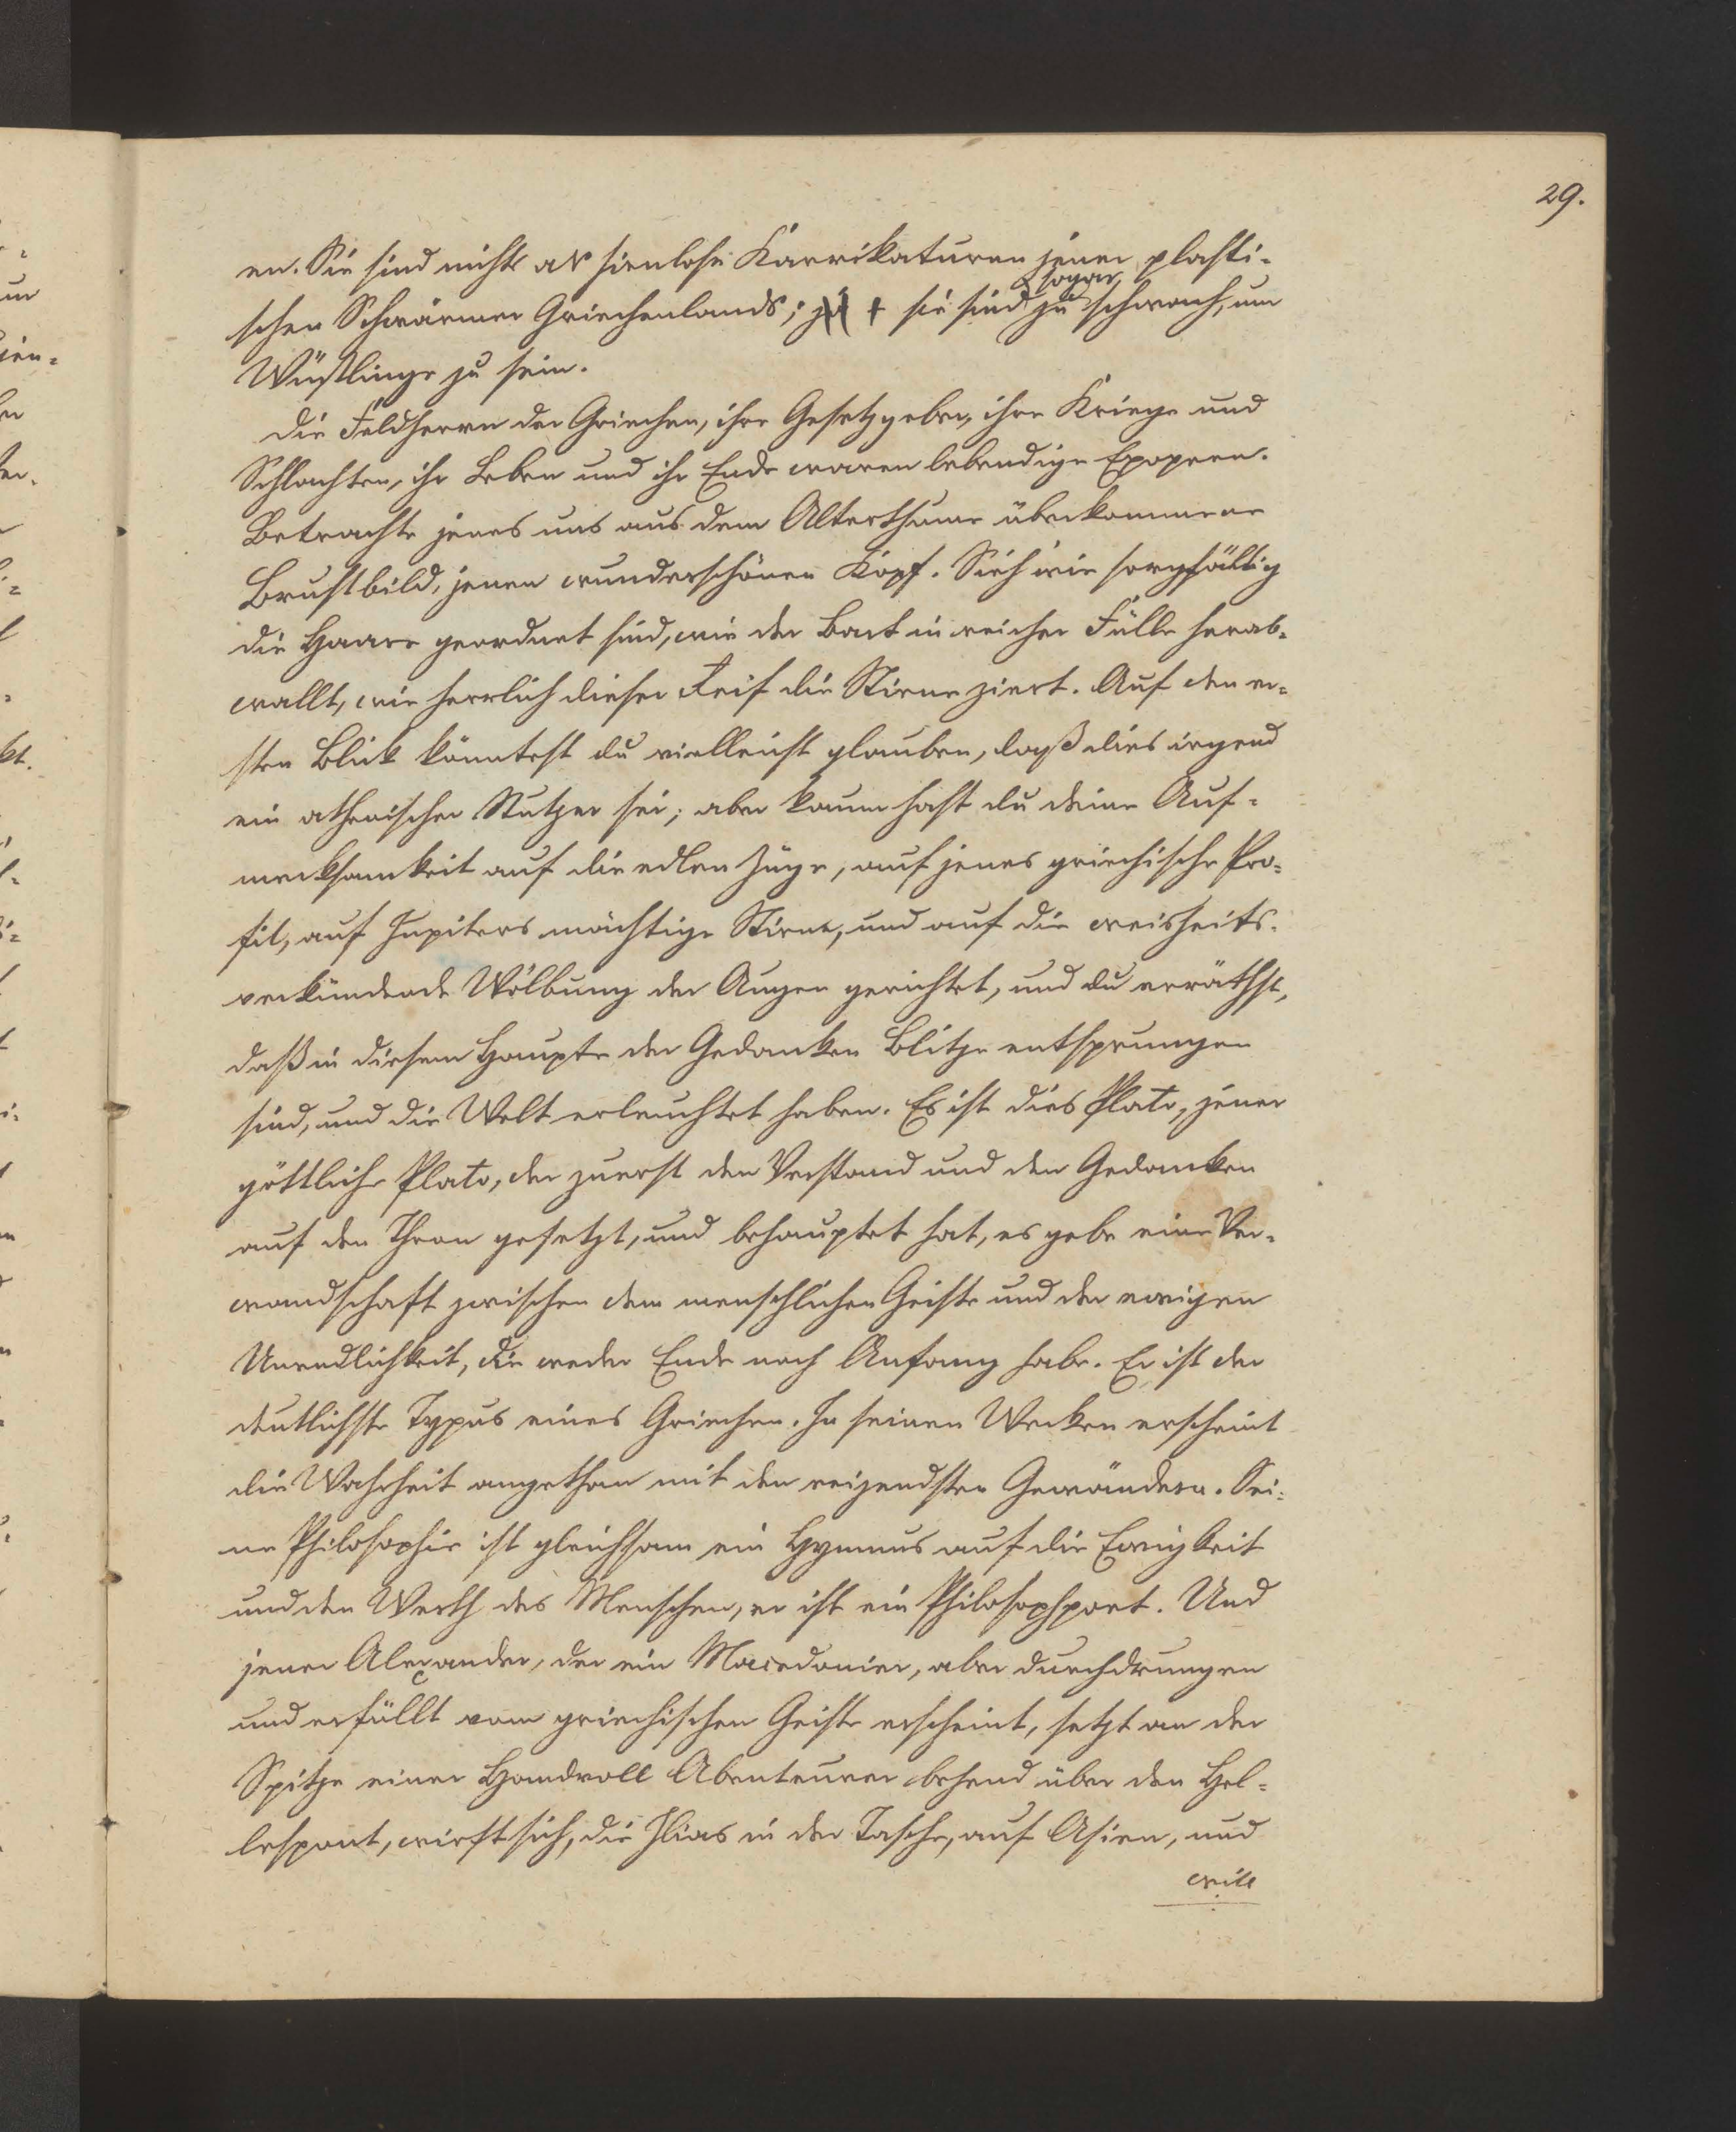 29.
en. Sie sind nichts als sinnlose Karrikaturen jener plasti-
schen Schwärmer Griechenlands; ja + sie sind sogar zu schwach, um
Wüstlinge zu sein.
Die Feldherrn der Griechen, ihre Gesetzgeber, ihre Kriege und
Schlachten, ihr Leben und ihr Ende waren lebendige Epopeen.
Betrachte jenes uns aus dem Alterthume überkommene
Brustbild, jenen wunderschönen Kopf. Sieh wie sorgfältig
die Haare geordnet sind, wie der Bart in reicher Fülle herab-
wallt, wie herrlich dieser Reif die Stirne ziert. Auf den er-
sten Blick könntest du vielleicht glauben, daß dies irgend
ein athenischer Stutzer sei; aber kaum hast du deine Auf-
merksamkeit auf die edlen Züge, auf jenes griechische Pro-
fil, auf Jupiters mächtige Stirne, und auf die weisheits-
verkündende Wölbung der Augen gerichtet, und du erräthst,
daß in diesem Haupte der Gedanken Blitze entsprungen
sind, und die Welt erleuchtet haben. Es ist dies Plato, jener
göttliche Plato, der zuerst den Verstand und den Gedanken
auf den Thron gesetzt, und behauptet hat, es gebe eine Ver-
wandschaft zwischen dem menschlichen Geiste und der ewigen
Unendlichkeit, die weder Ende noch Anfang habe. Er ist der
deutlichste Typus eines Griechen. In seinen Werken erscheint
die Wahrheit angethan mit den reizendsten Gewändern. Sei-
ne Philosophie ist gleichsam ein Hymnus auf die Ewigkeit
und den Werth des Menschen, er ist ein Philosophpoet. Und
jener Alexander, der ein Macedonier, aber durchdrungen
und erfüllt vom griechischen Geiste erscheint, setzt an der
Spitze einer Handvoll Abenteurer behend über den Hel-
lespont, wirft sich, die Ilias in der Tasche, auf Asien, und
will